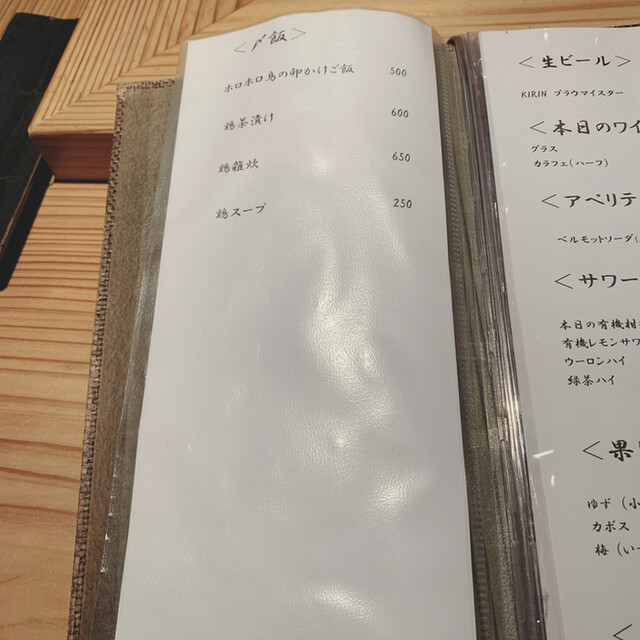 ＜〆飯＞
ホロホロ鳥の卵かけご飯 500
鶏茶漬け 600
鶏雑炊 650
鶏スープ 250
＜生ビール＞
KIRIN ブラウマイスター
＜本日のワイ
グラス
カラフェ(ハーフ)
＜アペリテ
ベルモットソーダ(
＜サワー
本日の有機柑
有機レモンサワ
ウーロンハイ
緑茶ハイ
＜果
ゆず(小
カボス
梅(い
＜